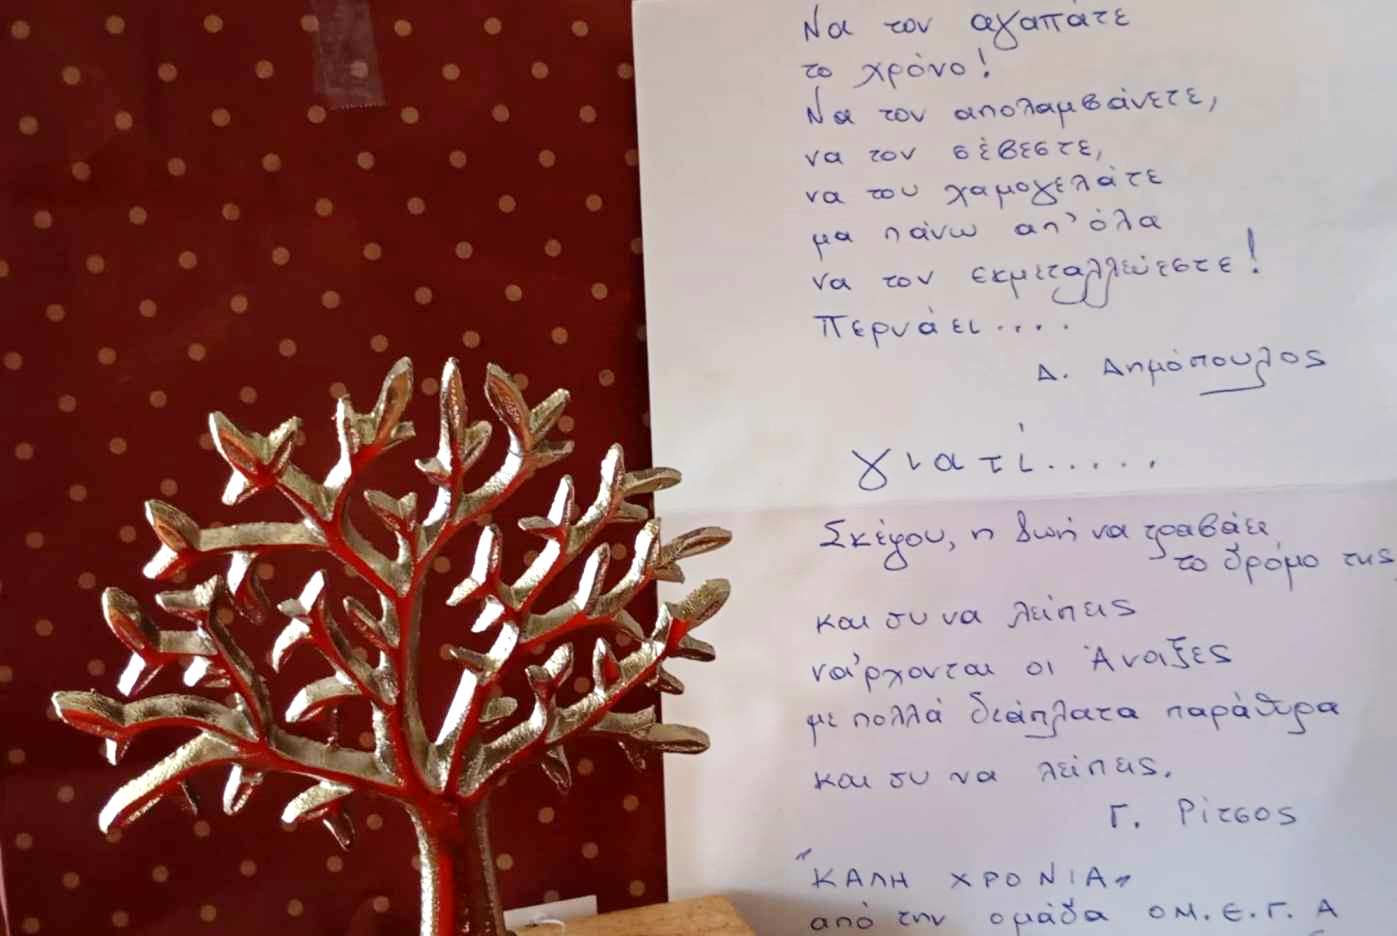 Να τον αγαπάτε
το χρόνο!
Να τον απολαμβάνετε,
να τον σέβεστε,
να του χαμογελάτε
μα πάνω απ' όλα
να τον εκμεταλλεύεστε!
Περνάει....
Δ. Δημόπουλος
γιατί.....
Σκέψου, η ζωή να τραβάει
το δρόμο της
και συ να λείπεις
να'ρχονται οι Άνοιξες
με πολλά διάπλατα παράθυρα
και συ να λείπεις.
Γ. Ρίτσος
"ΚΑΛΗ ΧΡΟΝΙΑ"
από την ομάδα ΟΜ.Ε.Γ. Α